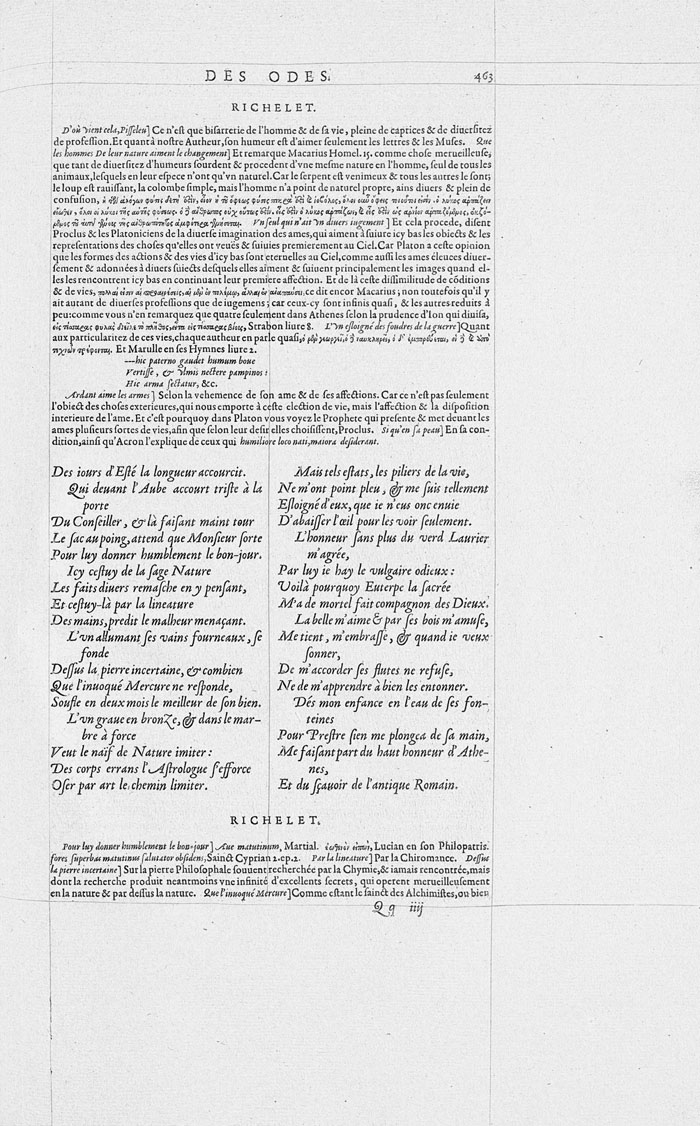 DES ODES.
463
RICHELET.
D'où vient cela, Pisseleu] Ce n'est que bisarterie de l'homme & de sa vie, pleine de caprices & de diuersitez
de profession. Et quant à nostre Autheur, son humeur est d'aimer seulement les lettres & les Muses. Que
les hommes De leur nature aiment le changement] Et remarque Macarius Homel. 15. comme chose merueilleuse,
que tant de diuersitez d'humeurs sourdent & procedent d'vne mesme nature en l'homme, seul de tous les
animaux, lesquels en leur espece n'ont qu'vn naturel. Car le serpent est venimeux & tous les autres le sont;
le loup est rauissant, la colombe simple, mais l'homme n'a point de naturel propre, ains diuers & plein de
confusion,
Vn seul qui n'ait vn diuers iugement] Et cela procede, disent
Proclus & les Platoniciens de la diuerse imagination des ames, qui aiment à suiure icy bas les obiects & les
representations des choses qu'elles ont veuës & suiuies premierement au Ciel. Car Platon a ceste opinion
que les formes des actions & des vies d'icy bas sont eternelles au Ciel, comme aussi les ames éleuces diuer-
sement & adonnées à diuers suiects desquels elles aiment & suiuent principalement les images quand el-
les les rencontrent icy bas en continuant leur premiere affection. Et de là ceste dissimilitude de cōditions
& de vies, ce dit encor Macarius; non toutefois qu'il y
ait autant de diuerses professions que de iugemens; car ceux-cy sont infinis quasi, & les autres reduits à
peu: comme vous n'en remarquez que quatre seulement dans Athenes selon la prudence d'Ion qui diuisa,
Strabon liure 8. L'vn esloigné des foudres de la guerre] Quant
aux particularitez de ces vies, chaque autheur en parle quasi,
Et Marulle en ses Hymnes liure 2.
---hic paterno gaudet humum boue
Vertisse, & Vlmis nectere pampinos:
Hic arma sectatur, &c.
Ardant aime les armes] Selon la vehemence de son ame & de ses affections. Car ce n'est pas seulement
l'obiect des choses exterieures, qui nous emporte à ceste election de vie, mais l'affection & la disposition
interieure de l'ame. Et c'est pourquoy dans Platon vous voyez le Prophete qui presente & met deuant les
ames plusieurs sortes de vies, afin que selon leur desir elles choisissent, Proclus. Si qu'en sa peau] En sa con-
dition, ainsi qu'Acron l'explique de ceux qui humiliore loco nati, maiora desiderant.
Des iours d'Esté la longueur accourcit.
Qui deuant l'Aube accourt triste à la
porte
Du Conseiller, & là faisant maint tour
Le sac au poing, attend que Monsieur sorte
Pour luy donner humblement le bon-jour.
Icy cestuy de la sage Nature
Les faits diuers remasche en y pensant,
Et cestuy-là par la lineature
Des mains, predit le malheur menaçant.
L'vn allumant ses vains fourneaux, se
fonde
Dessus la pierre incertaine, & combien
Que l'inuoqué Mercure ne responde,
Soufle en deux mois le meilleur de son bien.
L'vn graue en bronze, & dans le mar-
bre à force
Veut le naïf de Nature imiter:
Des corps errans l'Astrologue s'efforce
Oser par art le chemin limiter.
Mais tels estats, les piliers de la vie,
Ne m'ont point pleu, & me suis tellement
Esloigné d'eux, que ie n'eus onc enuie
D'abaisser l'œil pour les voir seulement.
L'honneur sans plus du verd Laurier
m'agrée,
Par luy ie hay le vulgaire odieux:
Voilà pourquoy Euterpe la sacrée
M'a de mortel fait compagnon des Dieux.
La belle m'aime & par ses bois m'amuse,
Me tient, m'embrasse, & quand ie veux
sonner,
De m'accorder ses flutes ne refuse,
Ne de m'apprendre à bien les entonner.
Dés mon enfance en l'eau de ses fon-
teines
Pour Prestre sien me plongea de sa main,
Me faisant part du haut honneur d'Athe-
nes,
Et du sçauoir de l'antique Romain.
RICHELET.
Pour luy donner humblement le bon-jour] Aue matutinum, Martial. Lucian en son Philopatris.
fores superbas matutinus salutator obsidens, Sainct Cyprian 2. ep. 2. Par la lineature] Par la Chiromance. Dessus
la pierre incertaine] Sur la pierre Philosophale souuent recherchée par la Chymie, & iamais rencontrée, mais
dont la recherche produit neantmoins vne infinité d'excellents secrets, qui operent merueilleusement
en la nature & par dessus la nature. Que l'inuoqué Mercure] Comme estant le sainct des Alchimistes, ou bien
Qq iiij